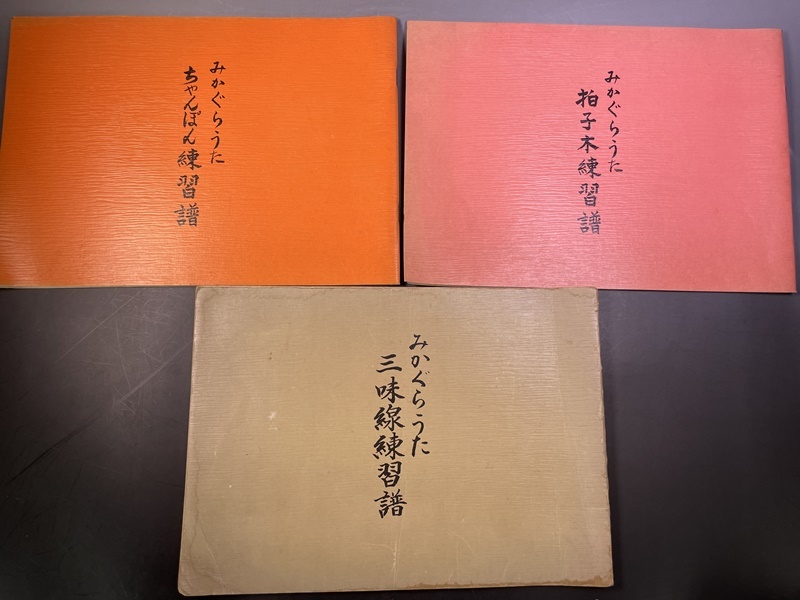 みかぐらうた
ちゃんぽん練習譜
みかぐらうた
拍子木練習譜
みかぐらうた
三味線練習譜